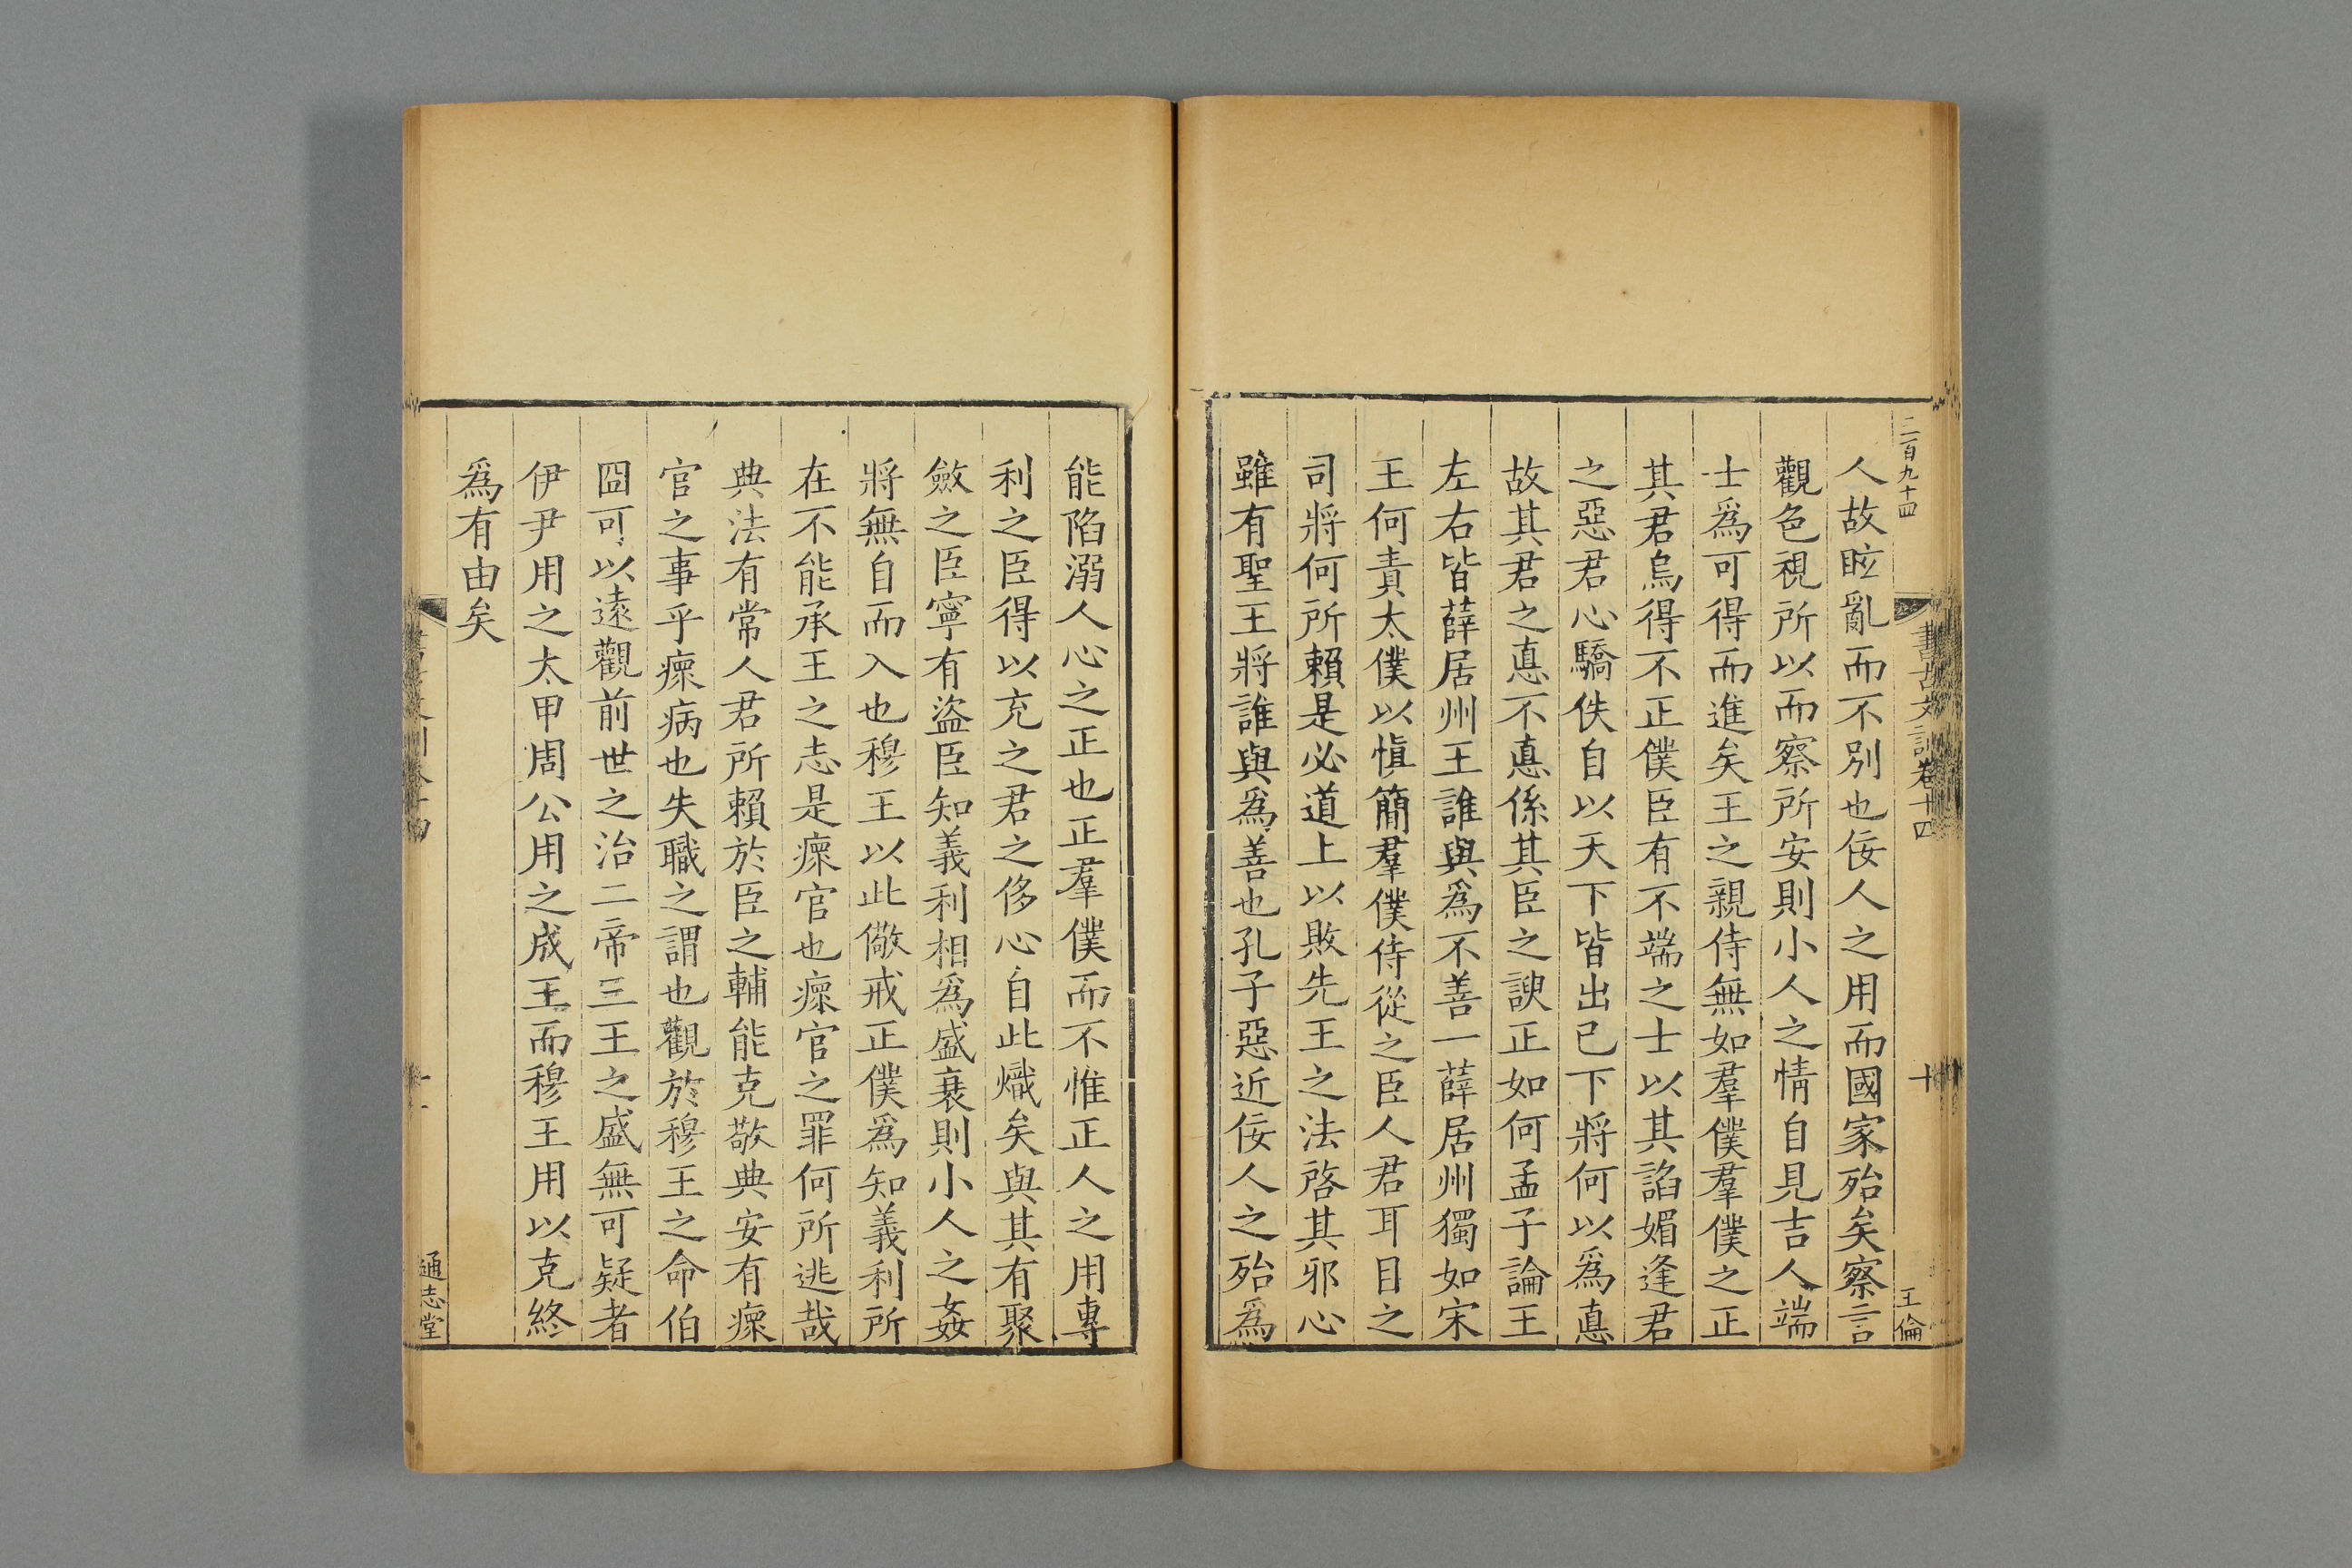 二百九十四
書古文訓卷十四
十
王倫
人故眩亂而不別也佞人之用而國家殆矣察言
觀色視所以而察所安則小人之情自見吉人端
士爲可得而進矣王之親侍無如羣僕羣僕之正
其君烏得不正僕臣有不端之士以其諂媚逢君
之惡君心驕佚自以天下皆出已下將何以爲悳
故其君之悳不悳係其臣之諛正如何孟子論王
左右皆薛居州王誰與爲不善一薛居州獨如宋
王何責太僕以愼簡羣僕侍從之臣人君耳目之
司將何所賴是必道上以敗先王之法啓其邪心
雖有聖王將誰與爲善也孔子惡近佞人之殆爲
能陷溺人心之正也正羣僕而不惟正人之用專
利之臣得以充之君之侈心自此熾矣與其有聚
斂之臣寧有盜臣知義利相爲盛衰則小人之姦
將無自而入也穆王以此儆戒正僕爲知義利所
在不能承王之志是瘝官也瘝官之罪何所逃哉
典法有常人君所賴於臣之輔能克敬典安有瘝
官之事乎瘝病也失職之謂也觀於穆王之命伯
囧可以遠觀前世之治二帝三王之盛無可疑者
伊尹用之太甲周公用之成王而穆王用以克終
爲有由矣
通志堂